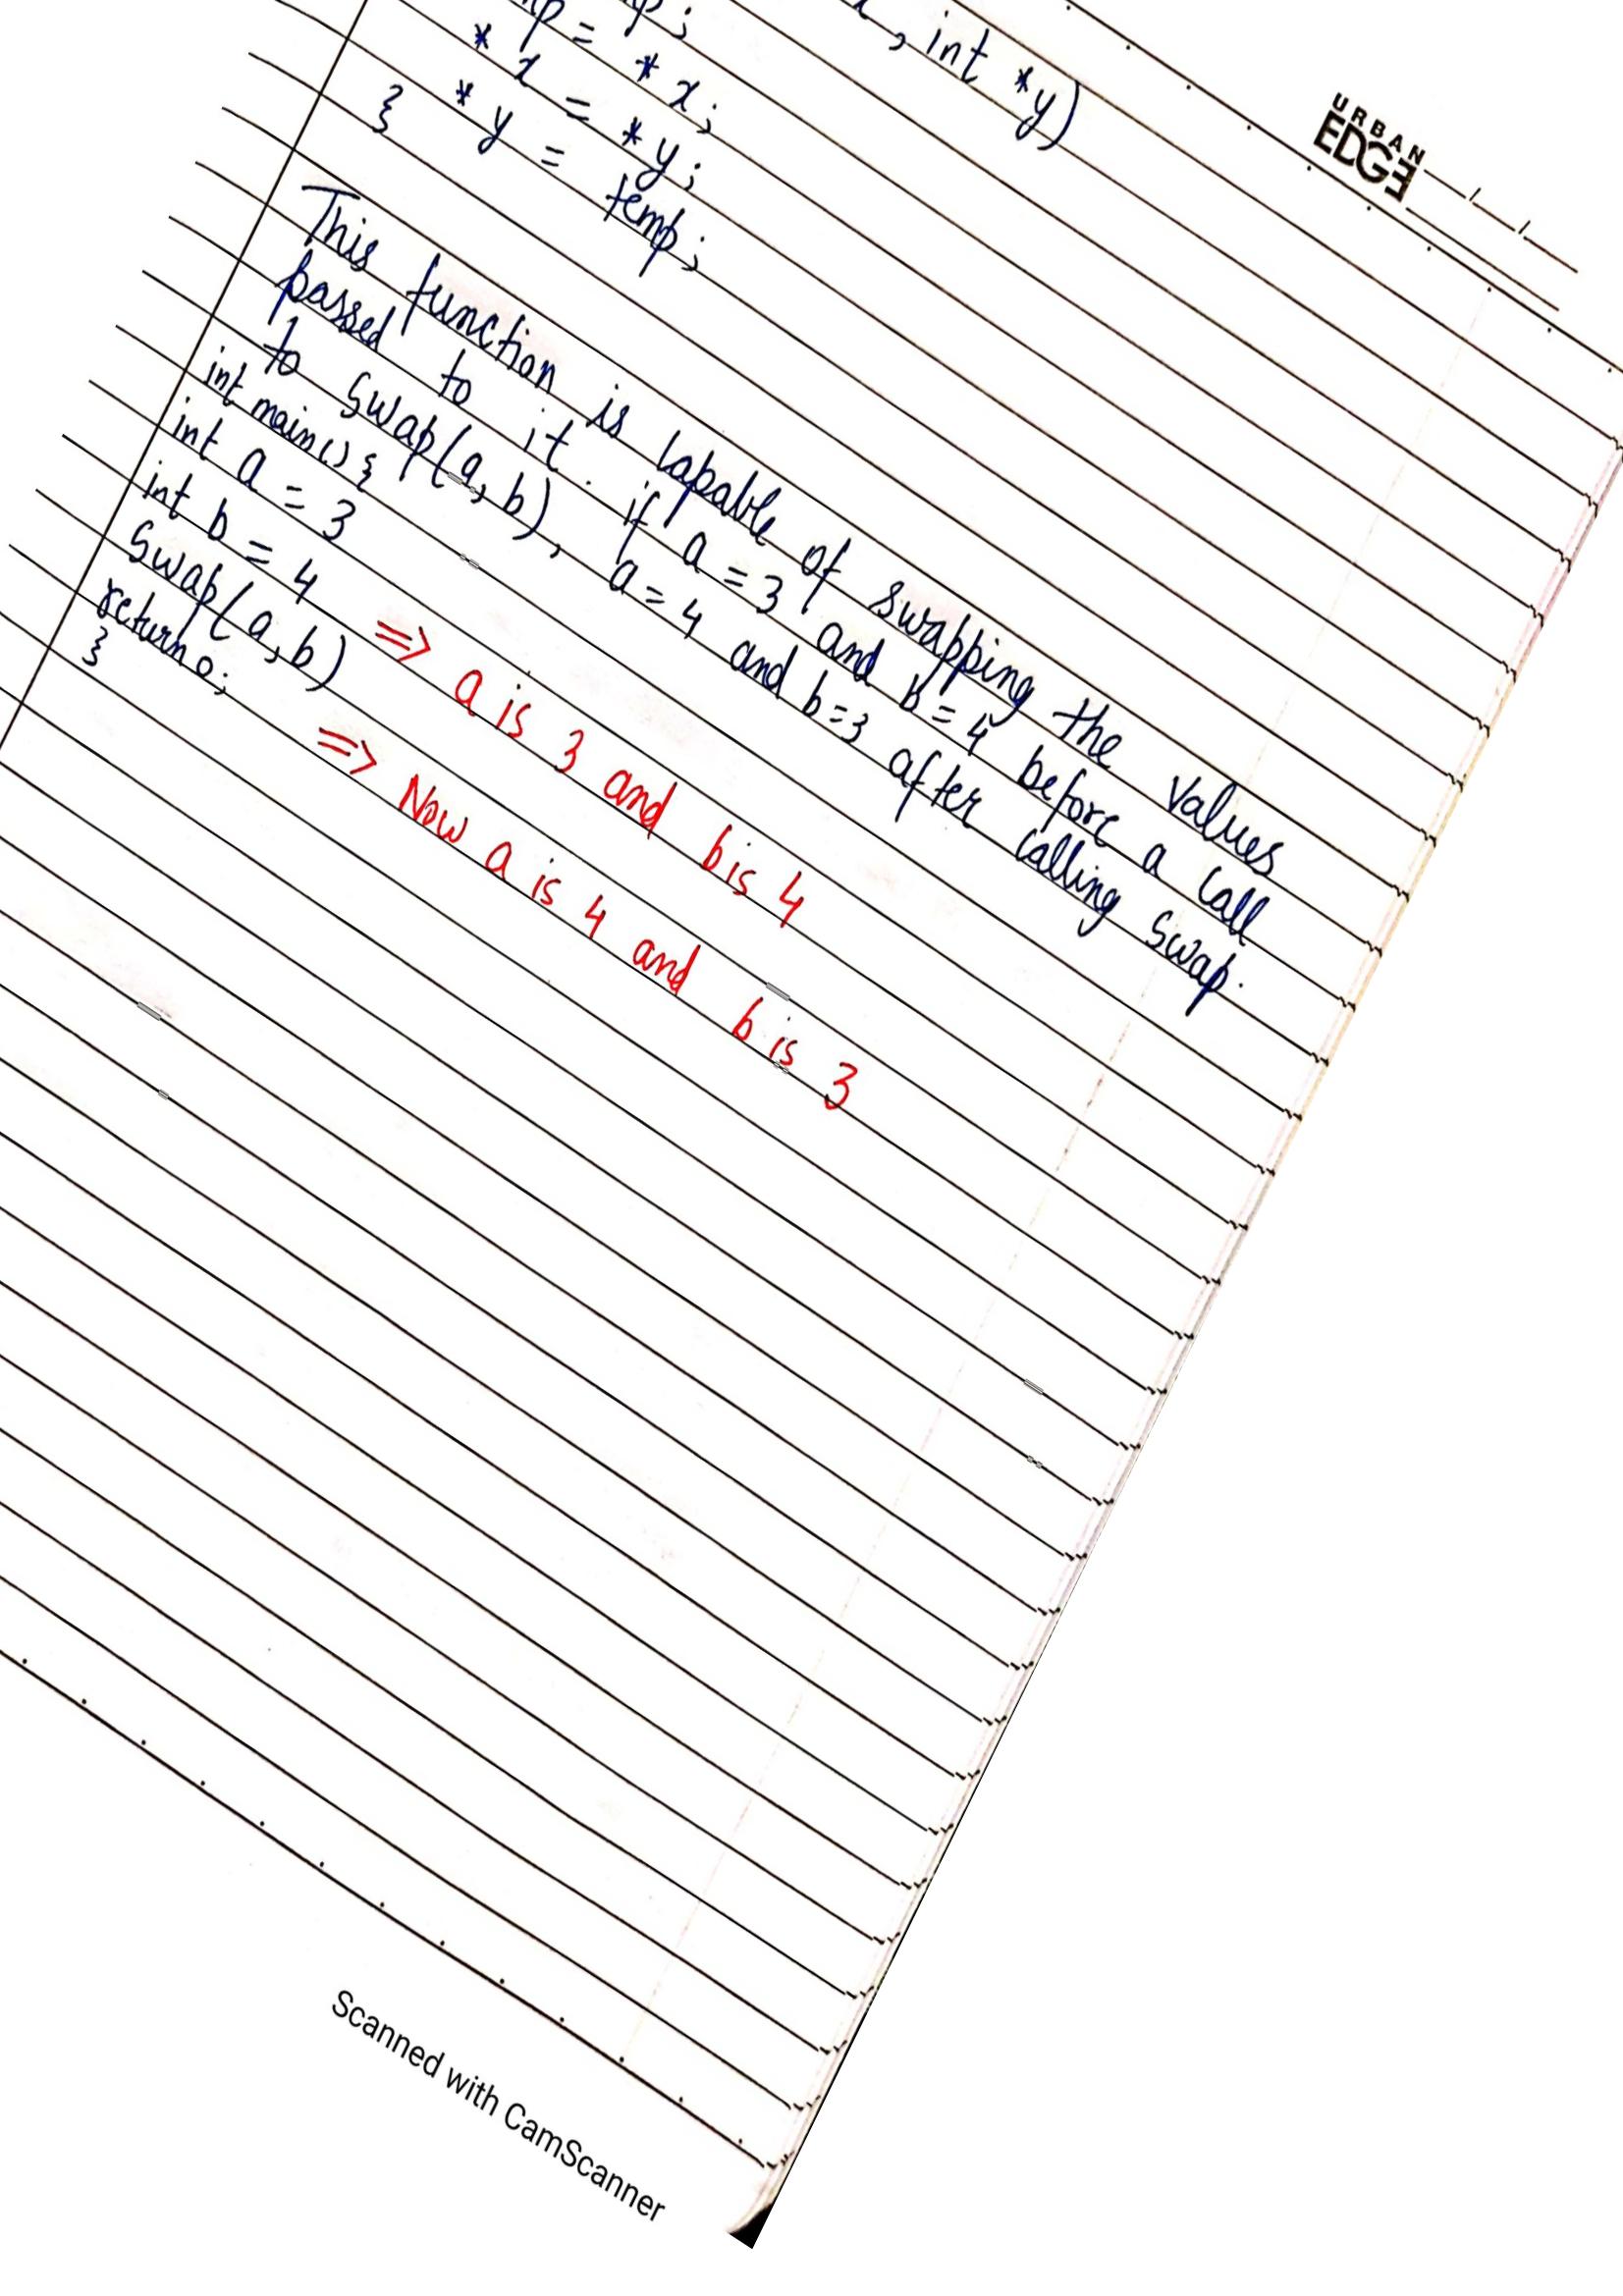 , int *y)
URBAN
EDGE
mp;
= *x;
*x = *y;
*y = temp;
}
This function is capable of swapping the values
passed to it. if a = 3 and b = 4 before a call
to swap(a, b), a = 4 and b=3 after calling swap.
int main() {
int a = 3
int b = 4 => a is 3 and b is 4
Swap(a, b)
return 0; => Now a is 4 and b is 3
}
Scanned with CamScanner